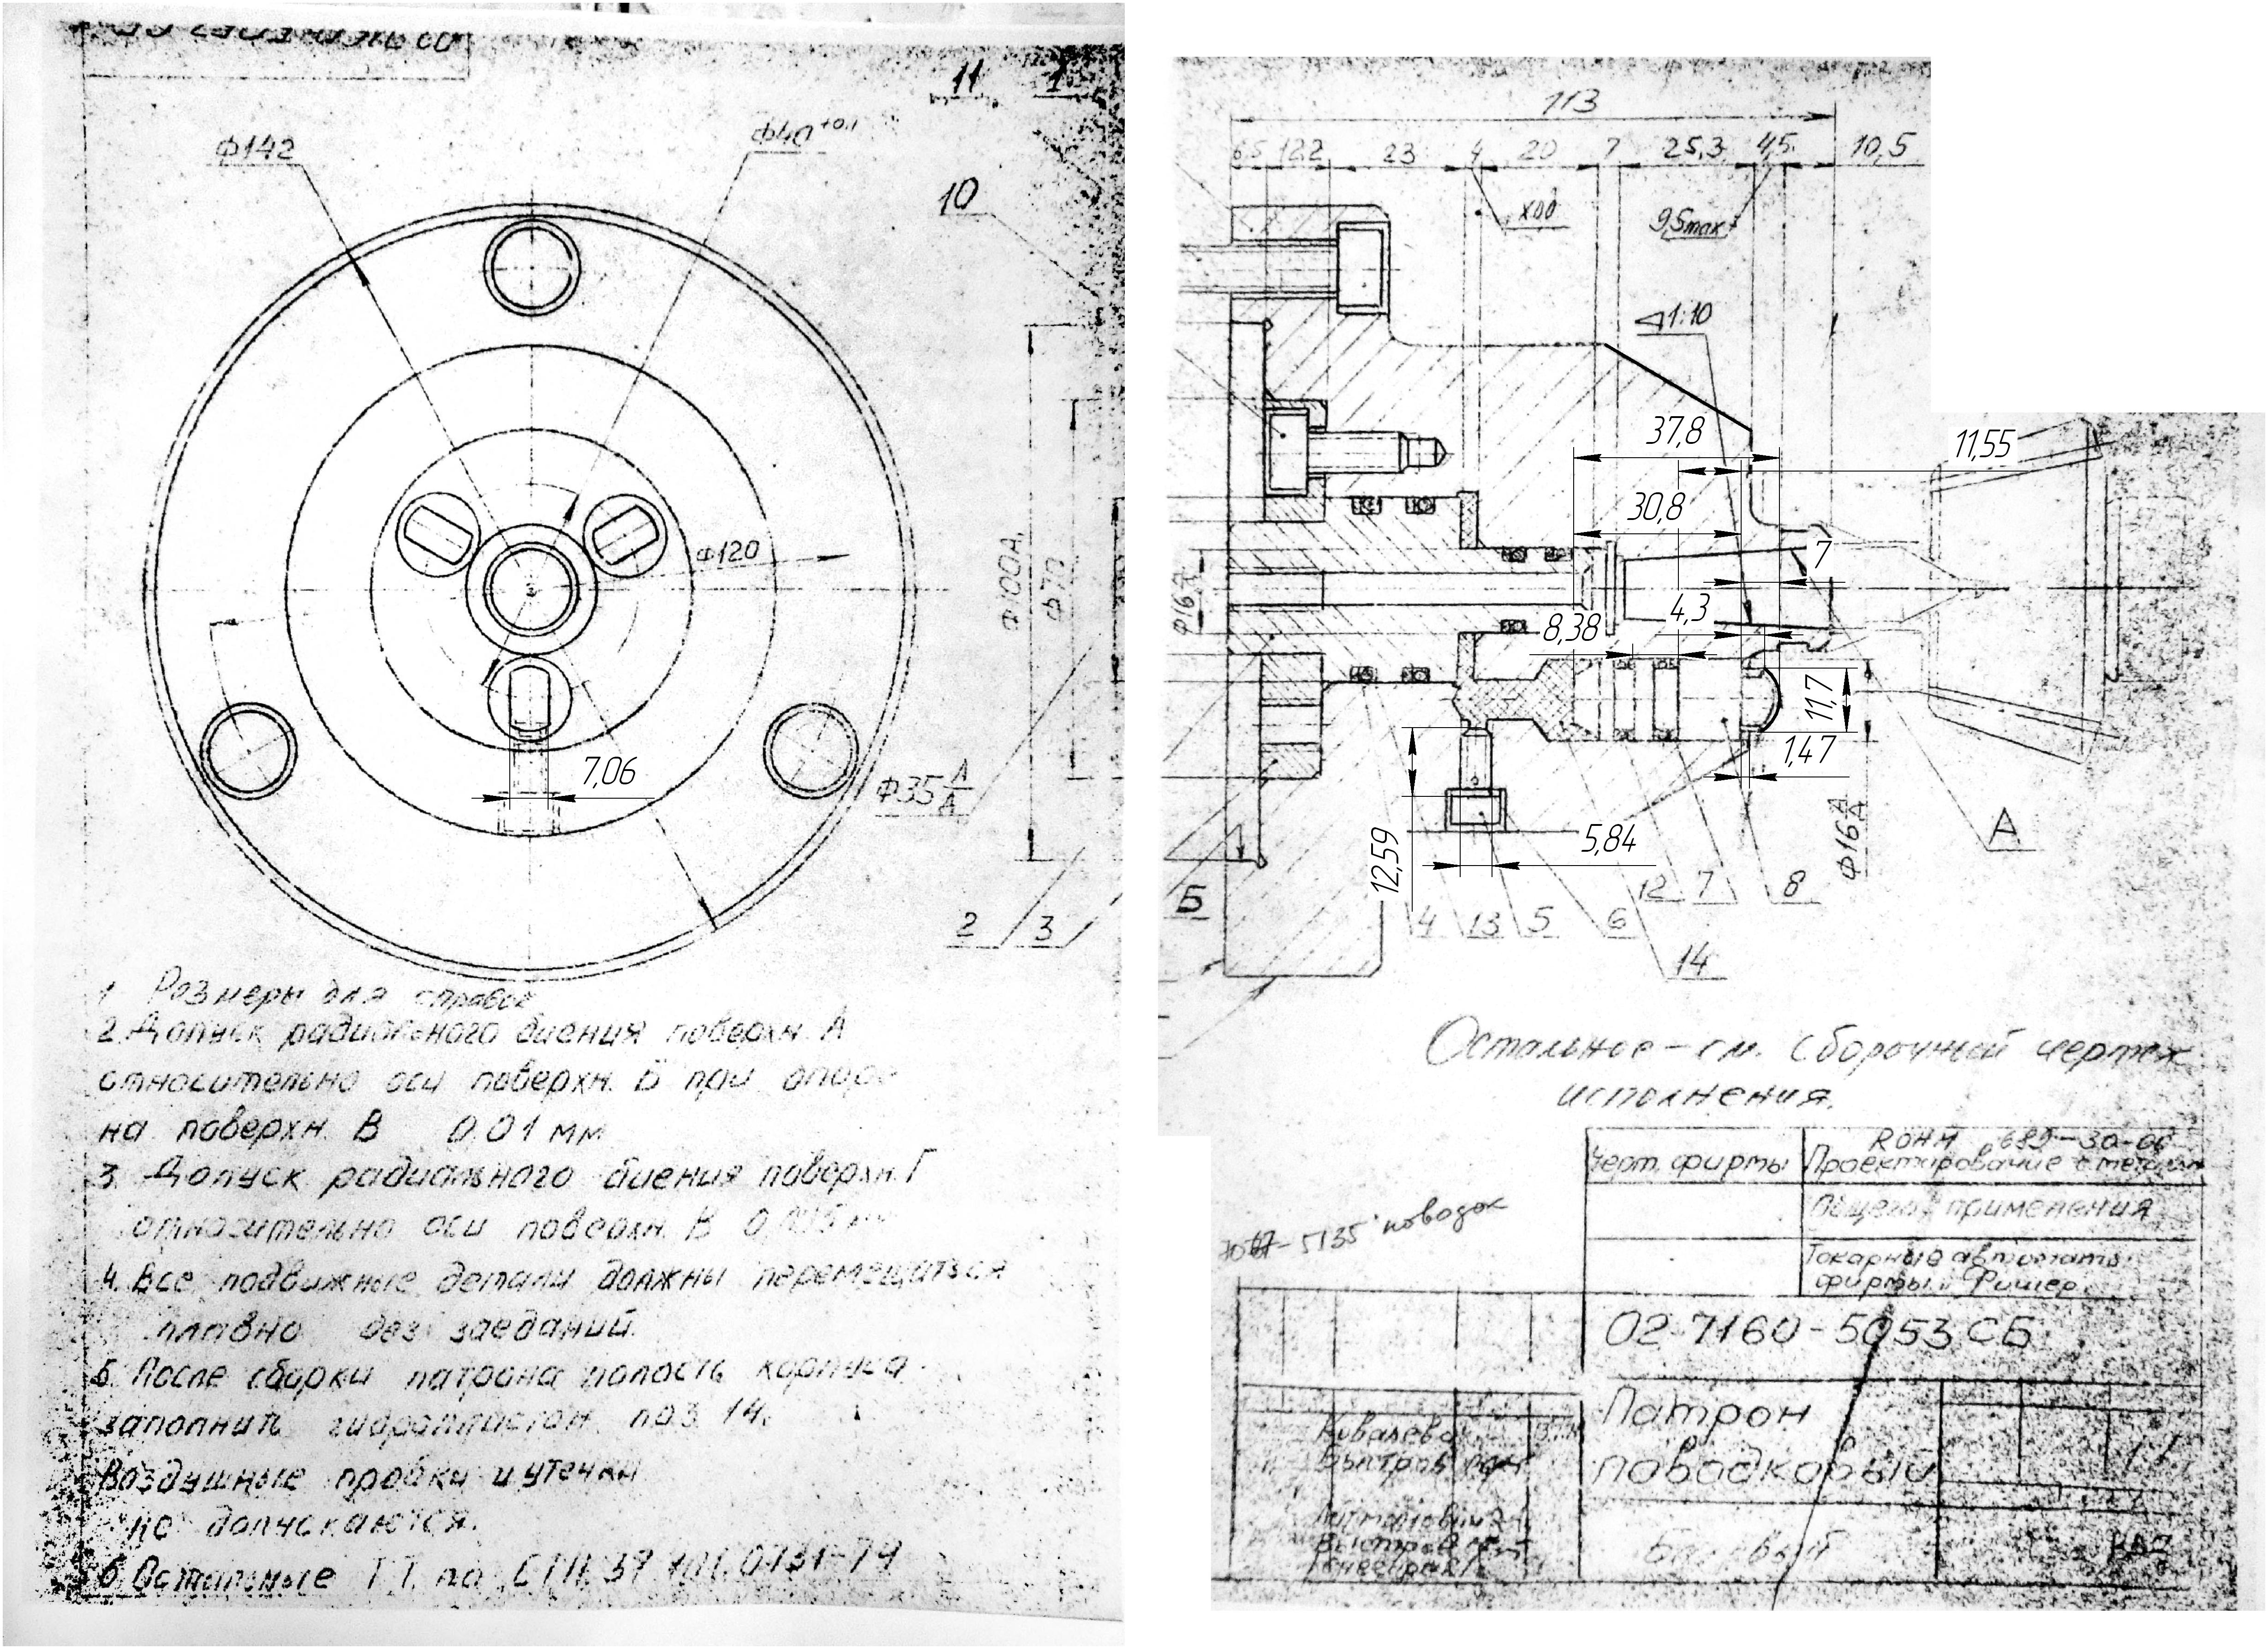 11 1
Ф142
Ф40 +0.1
10
Ф120
Ф100А
Ф70
7,06
Ф35 А/А
2 3
1 Размеры для справок
2. Допуск радиального биения поверхн. А
относительно оси поверхн. Б при опоре
на поверхн. В 0.01 мм
3. Допуск радиального биения поверхн. Г
относительно оси поверхн. В
4. Все подвижные детали должны перемещаться
плавно без заеданий.
5. После сборки патрона полость корпуса
заполнить гидропластом поз. 14.
Воздушные пробки и утечки
не допускаются.
6. Остальные Т.Т. по СТП 37.101.0131-79
113
6.5 12.2 23 4 20 7 25,3 4,5 10,5
ход
9,5max
1:10
37,8
11,55
30,8
7
Ф16
8,38
4,3
11,7
1,47
12,59
5,84
Ф16
А
Б
4 13 5 6 12 7 8
14
Остальное - см. сборочный чертеж
исполнения.
Черт. фирмы
RÖHM 689-30-00
Проектирование
Общего применения
Токарные автоматы
фирмы "Фишер"
5135 поводок
02 7160-5053 СБ
Патрон
поводковый
Ковалева
Быстров
Быстров